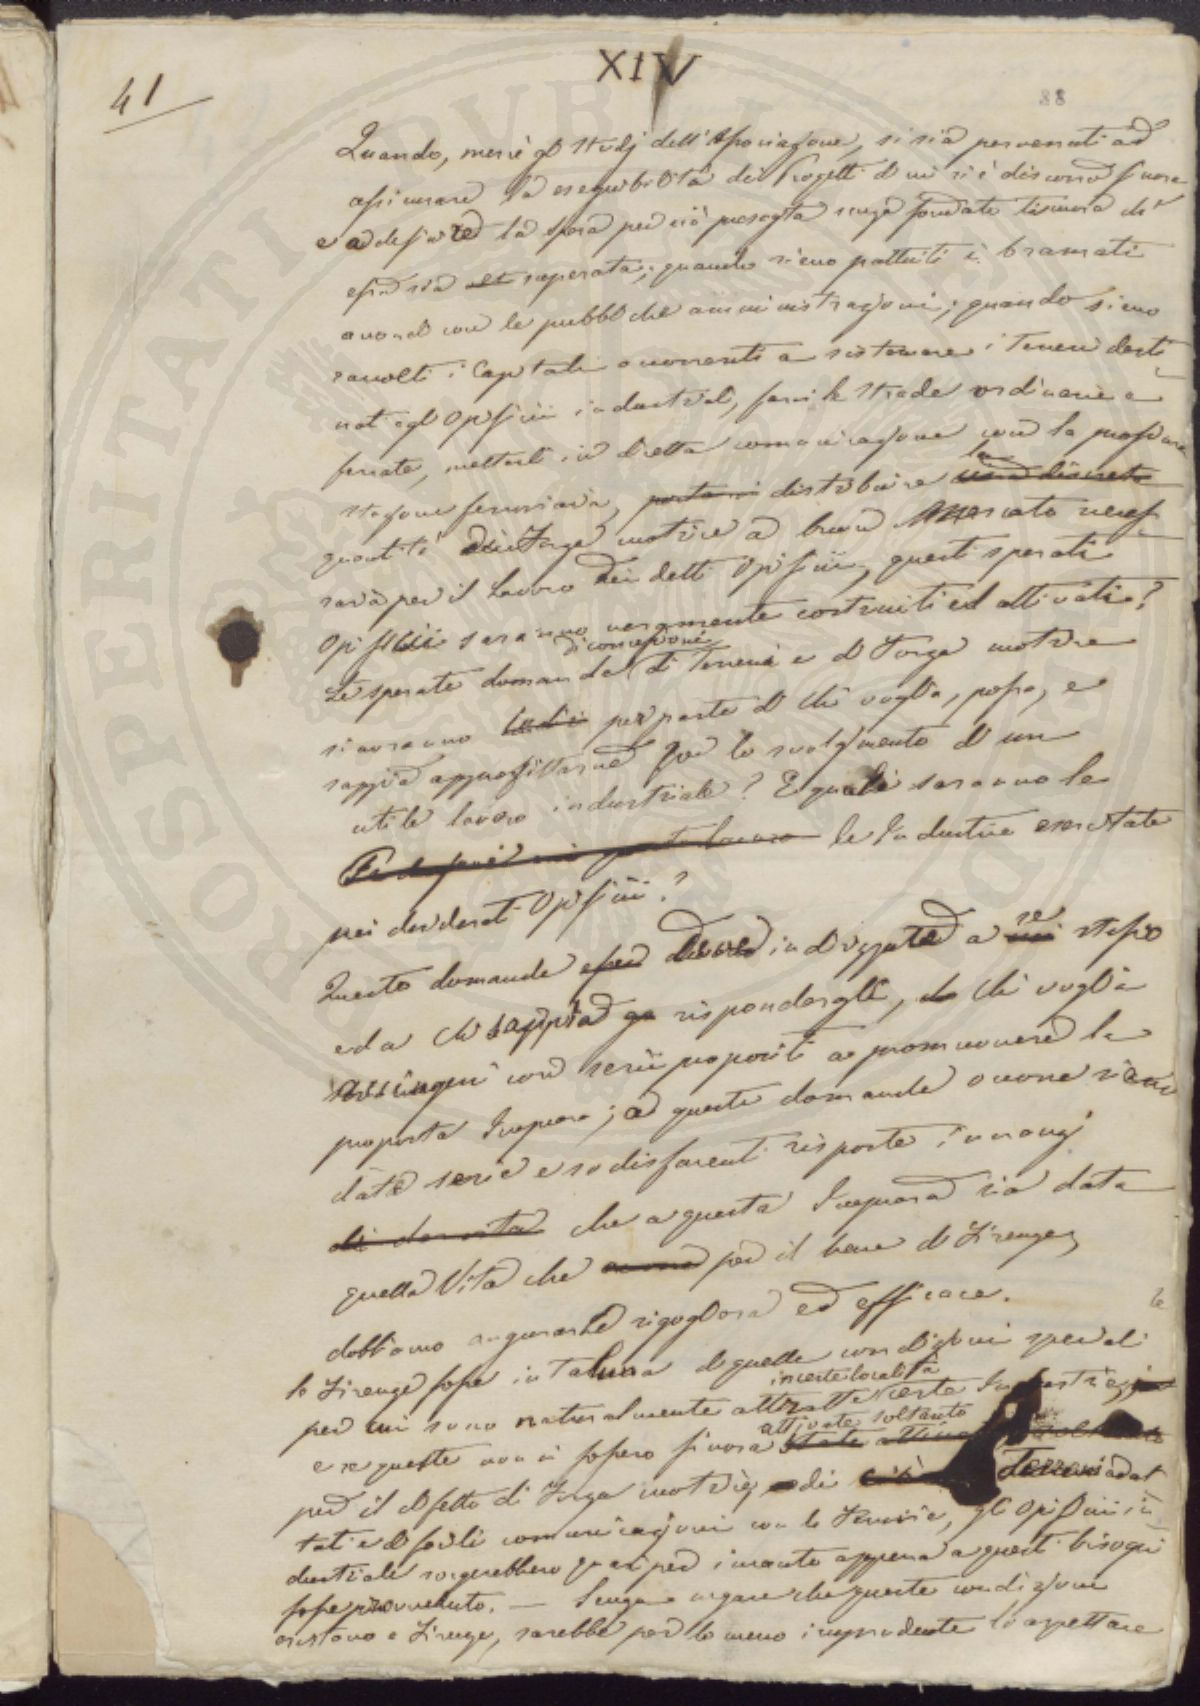 XIV
41
88
Quando, mercè gli studj dell'Associazione, si sia pervenuti ad
assicurare la eseguibilità dei Progetti di cui si è discorso finora
e a definire la spesa per ciò presagita senza fondato timore di
essa sia superata; quando sieno pattuiti i bramati
accordi con le pubbliche amministrazioni; quando sieno
raccolti i Capitali occorrenti a sistemare i Terreni desti
nati agli Opificii industriali, farvi le strade ordinarie e
ferrate, metterli in diretta comunicazione con la prossima
stazione ferroviaria, distribuire la
quantità di Forza motrice a buon Mercato neces
saria per il Lavoro dei detti Opificii, questi sperati
Opificii saranno veramente costruiti ed attivati?
Le sperate domande di concessione di Terreni e di Forza motrice
si avranno per parte di chi voglia, possa, e
sappia approfittarne per lo svolgimento di un
utile lavoro industriale? E quali saranno le
le Industrie esercitate
nei desiderati Opificii?
Queste domande deve indirizzare a se stesso
ed a chi sappia rispondergli, chi voglia
accingersi con serii propositi a promuovere la
proposta Impresa; a queste domande occorre sieno
date serie e sodisfacenti risposte innanzi
che a questa Impresa sia data
quella Vita che per il bene di Firenze,
dobbiamo augurarle rigogliosa ed efficace.
Se Firenze fosse in taluna di quelle condizioni speciali
per cui sono naturalmente attratte in certe località certe Industrie
e se queste non vi fossero finora attivate soltanto
per il difetto di Forza motrice, di Terreni adat
tati e di facili comunicazioni con le Ferrovie, gli Opificii in
dustriali sorgerebbero quasi per incanto appena a questi bisogni
fosse provveduto. — Senza negare che queste condizioni
esistano a Firenze, sarebbe per lo meno imprudente lo aspettare